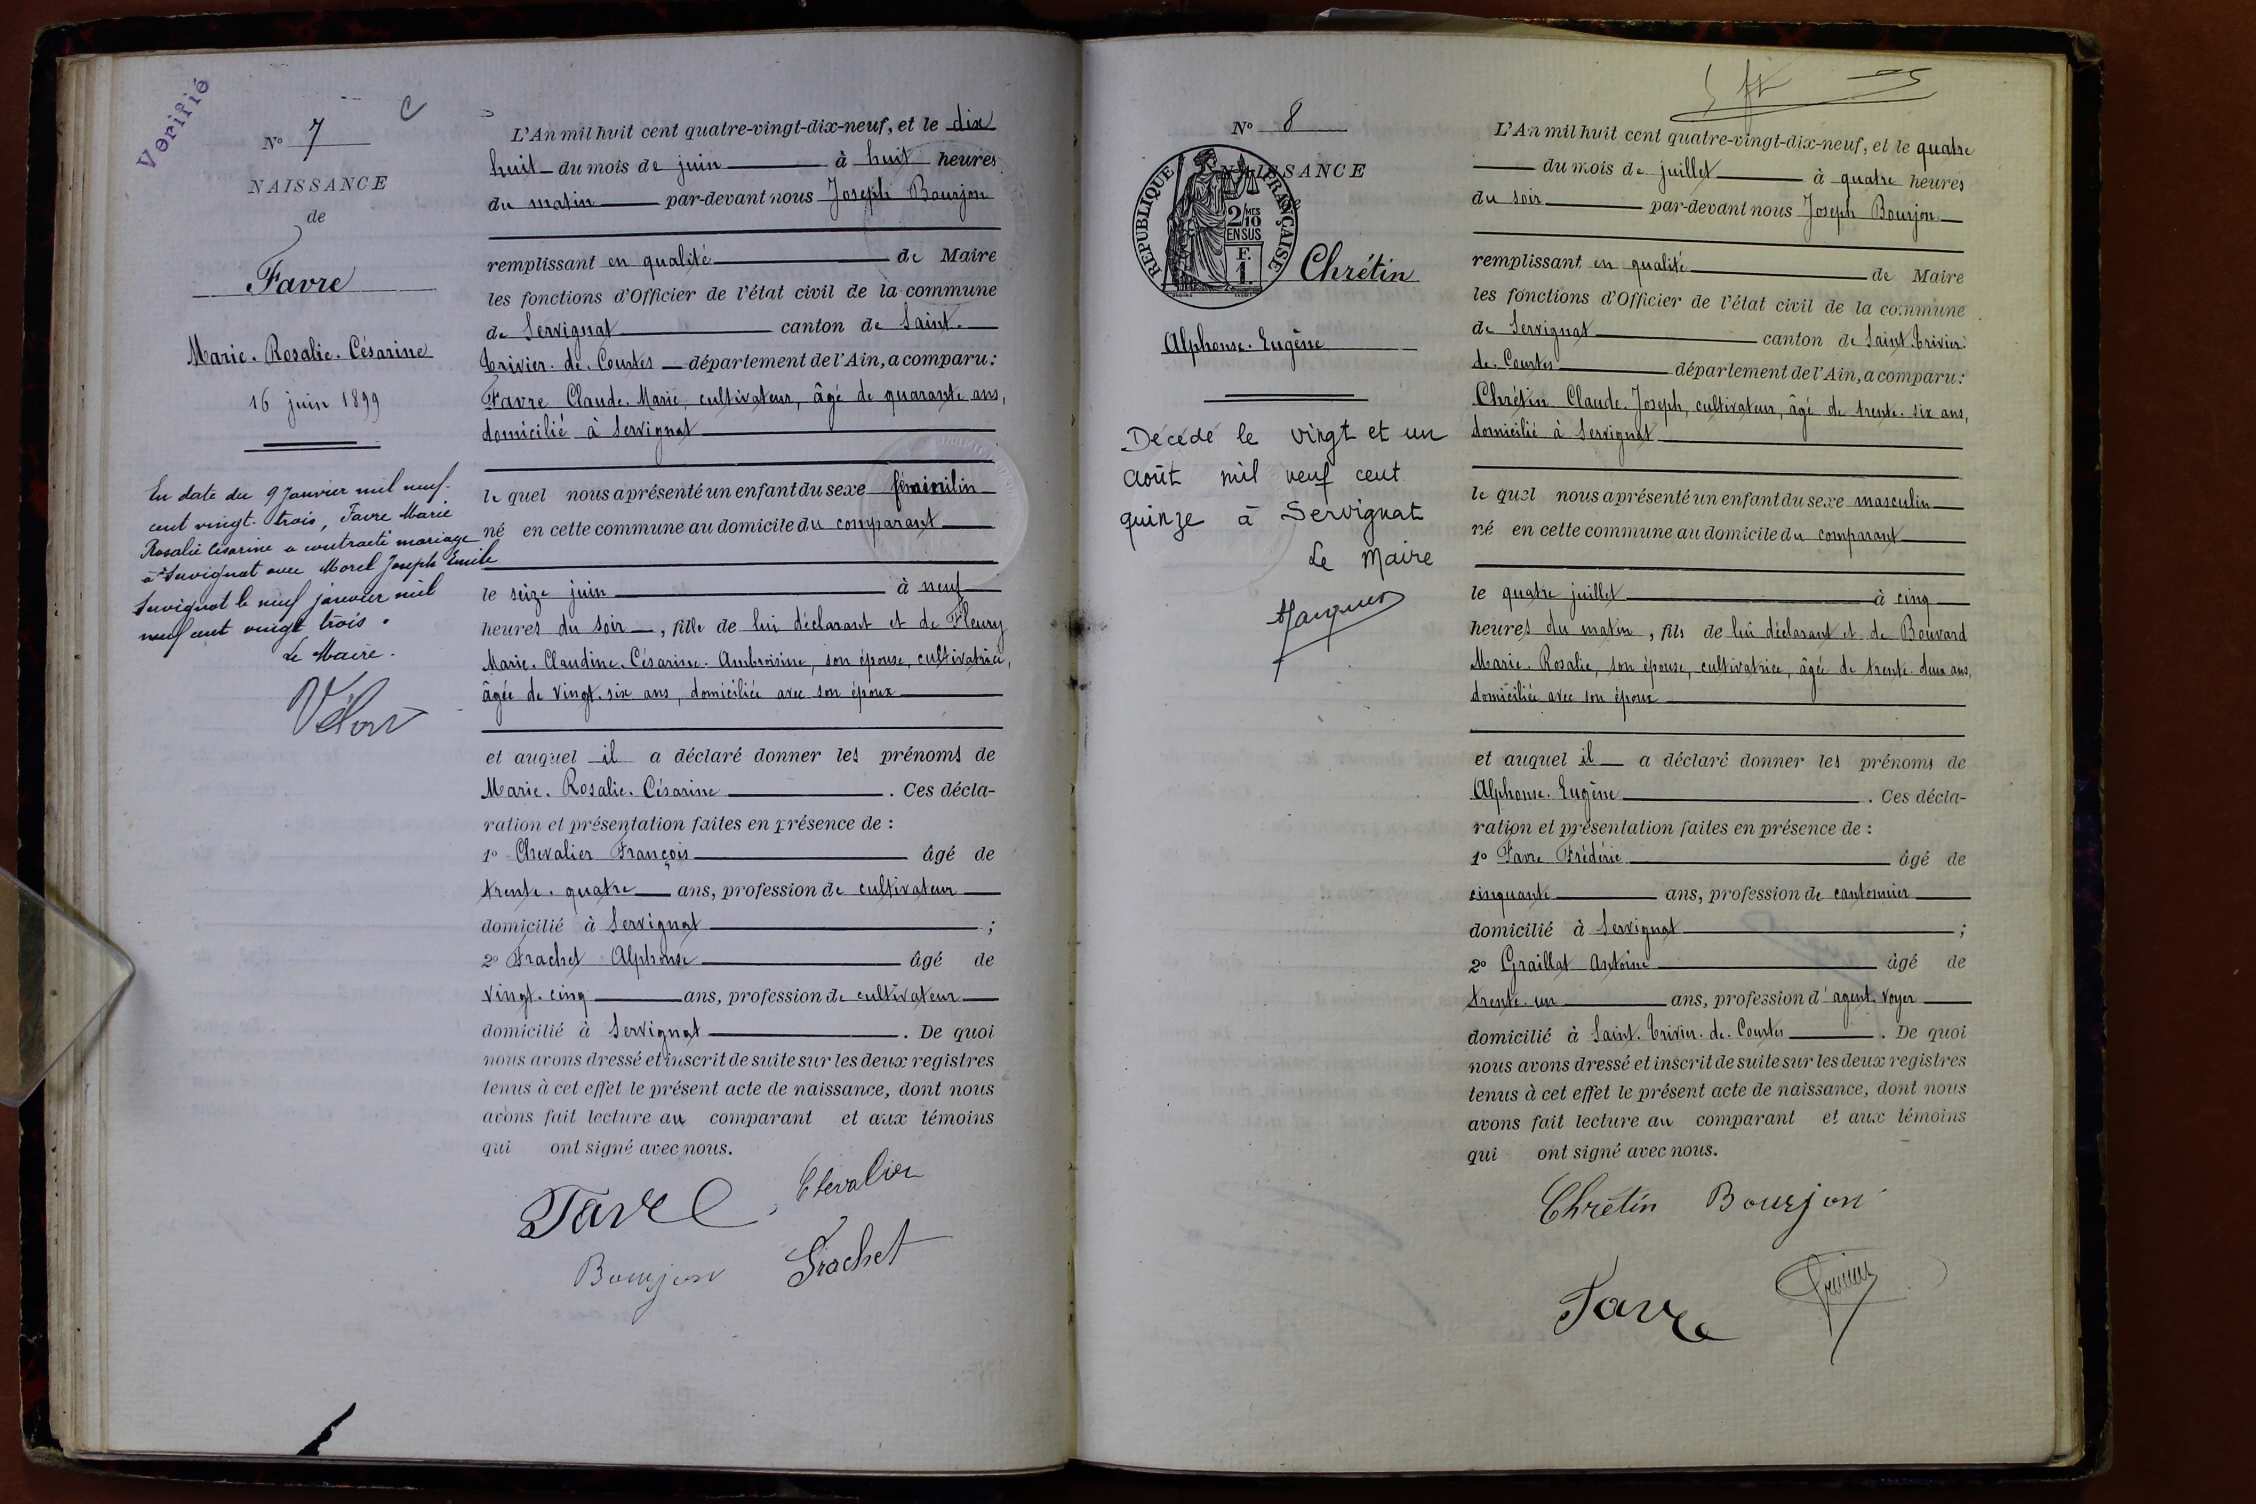 Verifié
C
N° 7
NAISSANCE
de
Favre
Marie. Rosalie. Césarine
16 juin 1899
En date du 9 Janvier mil neuf.
cent vingt. trois, Favre Marie
Rosalie Césarine a contracté mariage
à Servignat avec Morel Joseph Emile
Servignat le neuf janvier mil
neuf cent vingt trois.
Le Maire.
L'An mil huit cent quatre-vingt-dix-neuf, et le dix
huit du mois de juin à huit heures
du matin par-devant nous Joseph Bourjon
remplissant en qualité de Maire
les fonctions d'Officier de l'état civil de la commune
de Servignat canton de Saint.
Trivier. de. Courtes département de l'Ain, a comparu:
Favre Claude. Marie, cultivateur, âgé de quarante ans,
domicilié à Servignat
le quel nous a présenté un enfant du sexe
né en cette commune au domicile du comparant
le seize juin à neuf
heures du soir, fille de lui déclarant et de Fleury
Marie. Claudine. Césarine. Ambroisine, son épouse, cultivatrice,
âgée de vingt. six ans, domiciliée avec son époux
et auquel il a déclaré donner les prénoms de
Marie. Rosalie. Césarine. Ces décla-
ration et présentation faites en présence de :
1° Chevalier François âgé de
trente. quatre ans, profession de cultivateur
domicilié à Servignat ;
2° Frachet Alphonse âgé de
vingt. cinq ans, profession de cultivateur
domicilié à Servignat. De quoi
nous avons dressé et inscrit de suite sur les deux registres
tenus à cet effet le présent acte de naissance, dont nous
avons fait lecture au comparant et aux témoins
qui ont signé avec nous.
Favre Chevalier
Bourjon Frachet
N° 8
NAISSANCE
REPUBLIQUE FRANÇAISE
2/10 MES
EN SUS
F.
1.
Chrétin
Alphonse. Eugène
Décédé le vingt et un
août mil neuf cent
quinze à Servignat
Le Maire
L'An mil huit cent quatre-vingt-dix-neuf, et le quatre
du mois de juillet à quatre heures
du soir par-devant nous Joseph Bourjon
remplissant en qualité de Maire
les fonctions d'Officier de l'état civil de la commune
de Servignat canton de Saint. Trivier.
de. Courtes département de l'Ain, a comparu:
Chrétin Claude. Joseph, cultivateur, âgé de trente. six ans,
domicilié à Servignat
le quel nous a présenté un enfant du sexe masculin
né en cette commune au domicile du comparant
le quatre juillet à cinq
heures du matin, fils de lui déclarant et de Bouvard
Marie. Rosalie, son épouse, cultivatrice, âgée de trente. deux ans,
domiciliée avec son époux
et auquel il a déclaré donner les prénoms de
Alphonse. Eugène. Ces décla-
ration et présentation faites en présence de :
1° Favre Frédéric âgé de
cinquante ans, profession de cantonnier
domicilié à Servignat ;
2° Graillat Antoine âgé de
trente. un ans, profession d'agent. voyer
domicilié à Saint. Trivier. de. Courtes. De quoi
nous avons dressé et inscrit de suite sur les deux registres
tenus à cet effet le présent acte de naissance, dont nous
avons fait lecture au comparant et aux témoins
qui ont signé avec nous.
Chrétin Bourjon
Favre